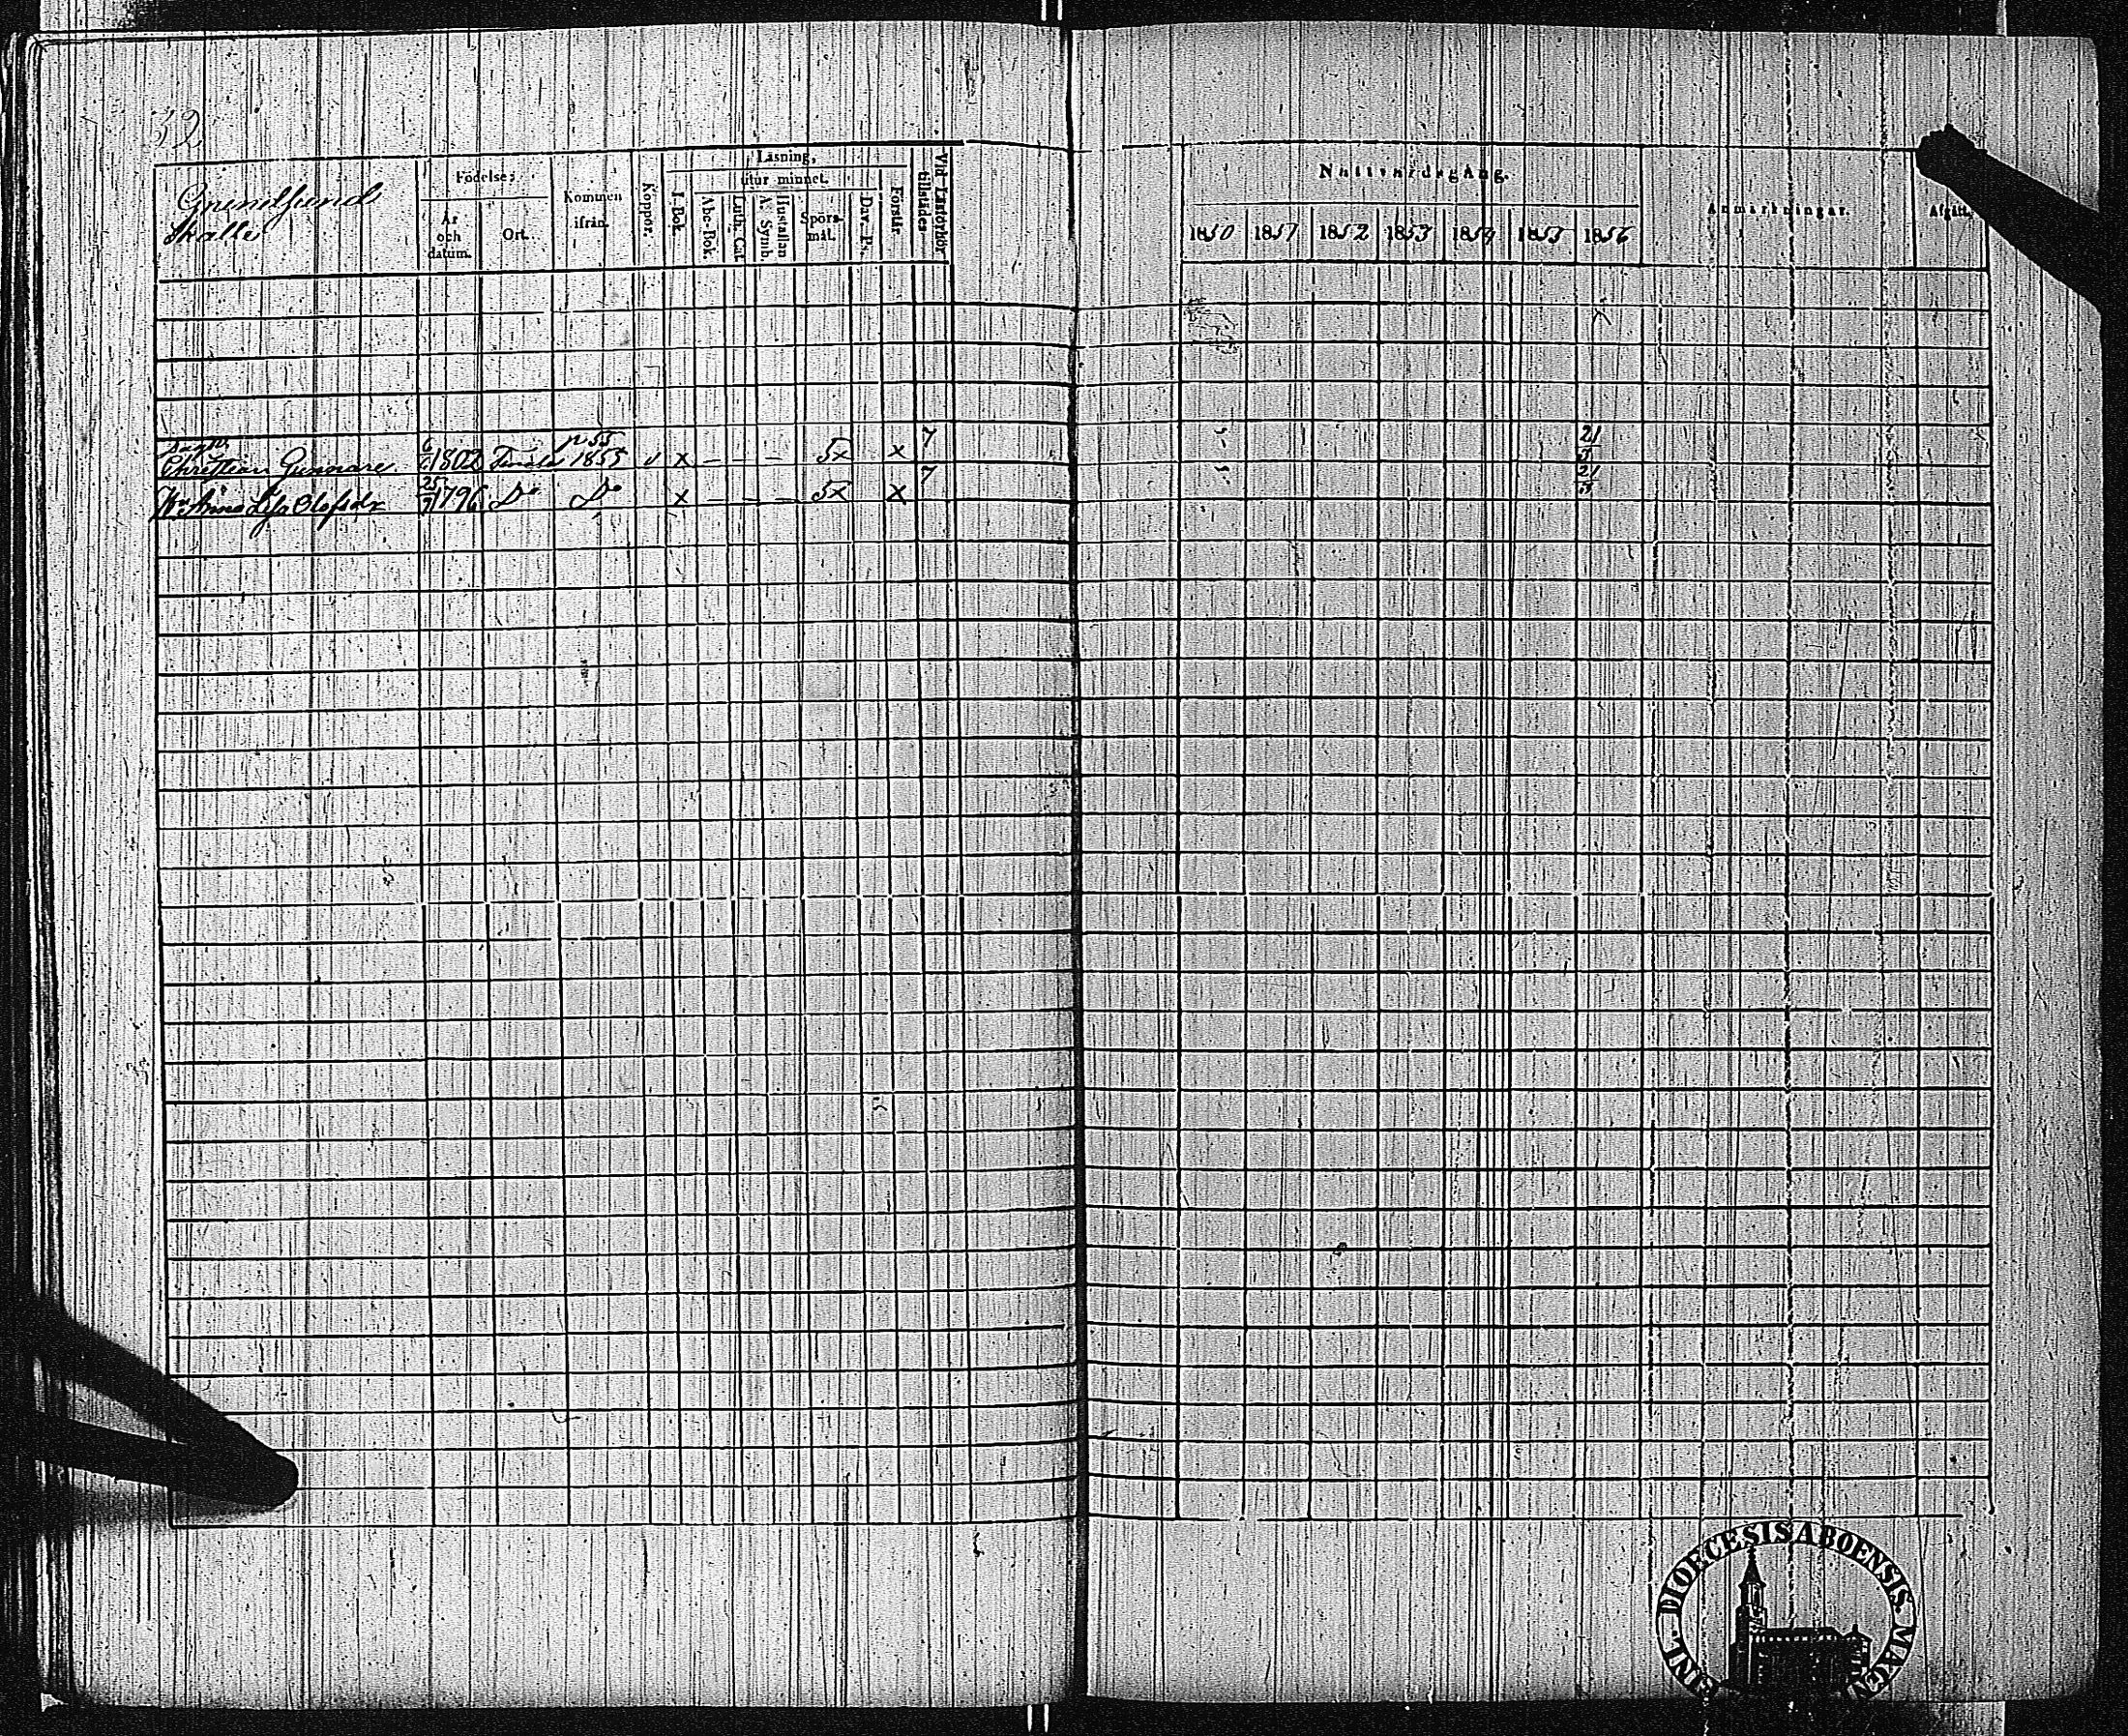 32
Grundsund
Skalle
Födelse:
År och datum.
Ort.
Kommen ifrån.
Koppor.
Läsning,
I. Bok.
utur minnet.
Abc-Bok.
Luth. Cat.
A. Symb.
Hustaflan
Spörs-mål.
Dav. P.
Förstår.
Vid Läsförhör tillstädes
Nattvardsgång.
1850 1851 1852 1853 1854 1855 1856
Anmärkningar.
Afgått.
Christian Gunnare 1802 1855 v x – – – 5x x 7 21/5
Lisa Olofsdr 25/7 1796 Do Do x – – – 5x x 7 21/5
DIOECESIS ABOENSIS